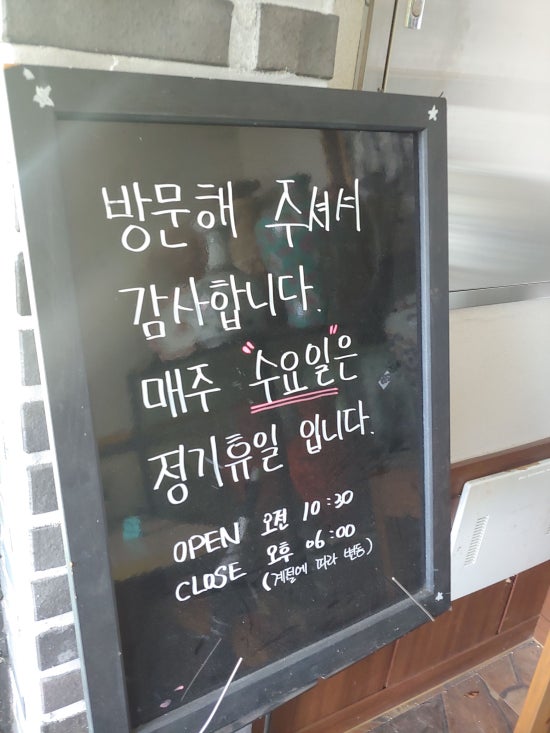 방문해 주셔서
감사합니다.
매주 "수요일"은
정기휴일 입니다.
OPEN 오전 10:30
CLOSE 오후 06:00
(계절에 따라 변동)